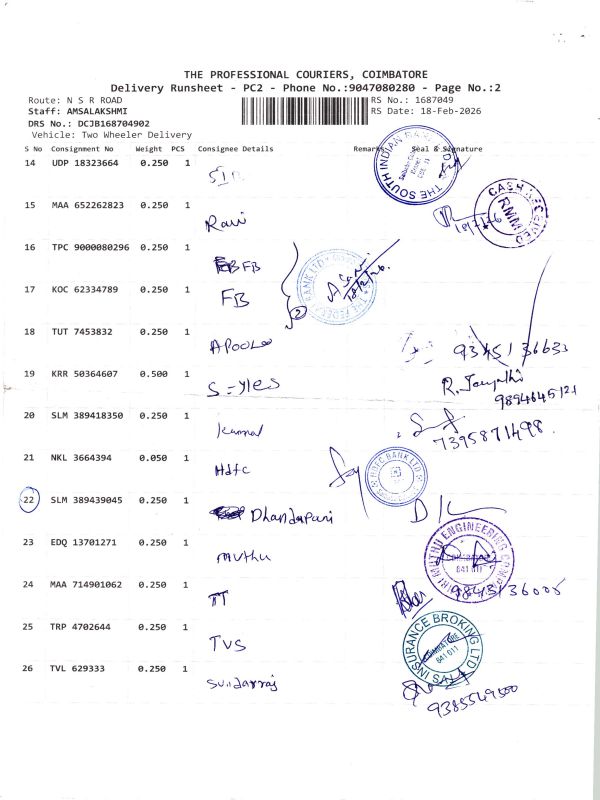 THE PROFESSIONAL COURIERS, COIMBATORE
Delivery Runsheet - PC2 - Phone No.:9047080280 - Page No.:2
Route: N S R ROAD RS No.: 1687049
Staff: AMSALAKSHMI RS Date: 18-Feb-2026
DRS No.: DCJB168704902
Vehicle: Two Wheeler Delivery
S No Consignment No Weight PCS Consignee Details Remarks Seal & Signature
14 UDP 18323664 0.250 1
THE SOUTH INDIAN BANK
15 MAA 652262823 0.250 1 Ravi
CASH RECEIVED
16 TPC 9000080296 0.250 1 FB
17 KOC 62334789 0.250 1 FB
THE FEDERAL BANK LTD
2
18 TUT 7453832 0.250 1
19 KRR 50364607 0.500 1
9894645121
20 SLM 389418350 0.250 1 Kamal
7395871498
21 NKL 3664394 0.050 1 Hdfc
HDFC BANK LTD
22 SLM 389439045 0.250 1 Dhandapani
23 EDQ 13701271 0.250 1 muthu
MUTHU ENGINEERING
641 011
24 MAA 714901062 0.250 1 TT
25 TRP 4702644 0.250 1 TVS
INSURANCE BROKING LTD
COIMBATORE
641 011
26 TVL 629333 0.250 1 Sundarraj
9385549500